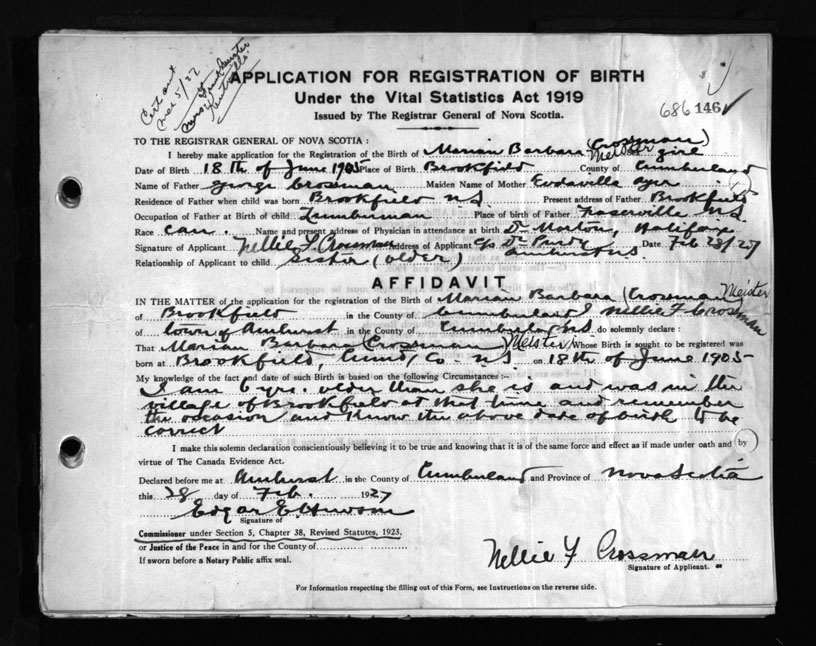 Cert out
Mar 5/27
APPLICATION FOR REGISTRATION OF BIRTH
Under the Vital Statistics Act 1919
Issued by The Registrar General of Nova Scotia.
686 146
TO THE REGISTRAR GENERAL OF NOVA SCOTIA :
I hereby make application for the Registration of the Birth of Marian Barbara (Crossman) Meister girl
Date of Birth 18th of June 1905 Place of Birth Brookfield County of Cumberland
Name of Father George Crossman Maiden Name of Mother
Residence of Father when child was born Brookfield N.S. Present address of Father Brookfield
Occupation of Father at Birth of child Lumberman Place of birth of Father Fraserville N.S.
Race Can. Name and present address of Physician in attendance at birth Dr Morton, Halifax
Signature of Applicant Nellie F Crossman Address of Applicant c/o Dr Purdy Amherst N.S. Date Feb 28/27
Relationship of Applicant to child Sister (older)
AFFIDAVIT
IN THE MATTER of the application for the registration of the Birth of Marian Barbara (Crossman) Meister
of Brookfield in the County of Cumberland I Nellie F Crossman
of town of Amherst in the County of Cumberland do solemnly declare :
That Marian Barbara Crossman (Meister) Whose Birth is sought to be registered was
born at Brookfield, Cumb, Co. N.S. on 18th of June 1905
My knowledge of the fact and date of such Birth is based on the following Circumstances :-
I am 6 yrs. older than she is and was in the
village of Brookfield at that time and remember
the occasion and know the above date of birth to be
correct
I make this solemn declaration conscientiously believing it to be true and knowing that it is of the same force and effect as if made under oath and by
virtue of The Canada Evidence Act.
Declared before me at Amherst in the County of Cumberland and Province of Nova Scotia
this 28 day of Feb. 1927
Edgar E.
Signature of
Commissioner under Section 5, Chapter 38, Revised Statutes, 1923.
or Justice of the Peace in and for the County of
If sworn before a Notary Public affix seal.
Nellie F Crossman
Signature of Applicant.
For Information respecting the filling out of this Form, see Instructions on the reverse side.